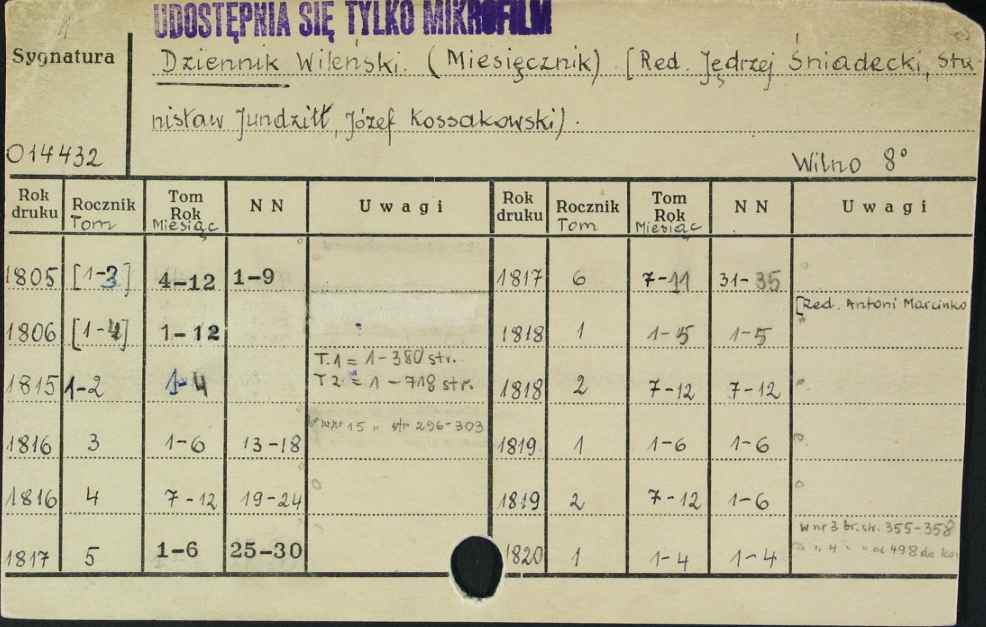 UDOSTĘPNIA SIĘ TYLKO MIKROFILM
Sygnatura
Dziennik Wileński. (Miesięcznik) [Red. Jędrzej Śniadecki, Sta-
nisław Jundziłł, Józef Kossakowski).
014432
Wilno 8°
Rok druku Rocznik Tom Tom Rok Miesiąc NN Uwagi Rok druku Rocznik Tom Tom Rok Miesiąc NN Uwagi
1805 [1-3] 4-12 1-9 1817 6 7-11 31-35
[Red. Antoni Marcinko
1806 [1-4] 1-12 1818 1 1-5 1-5
T.1 = 1-380 str.
1815 1-2 1-4 T2 = 1-718 str. 1818 2 7-12 7-12
nr 15 „ str 296-303
1816 3 1-6 13-18 1819 1 1-6 1-6
1816 4 7-12 19-24 1819 2 7-12 1-6
w nr 3 br. str. 355-358
1817 5 1-6 25-30 1820 1 1-4 1-4 „ 4 „ „ od 498 do